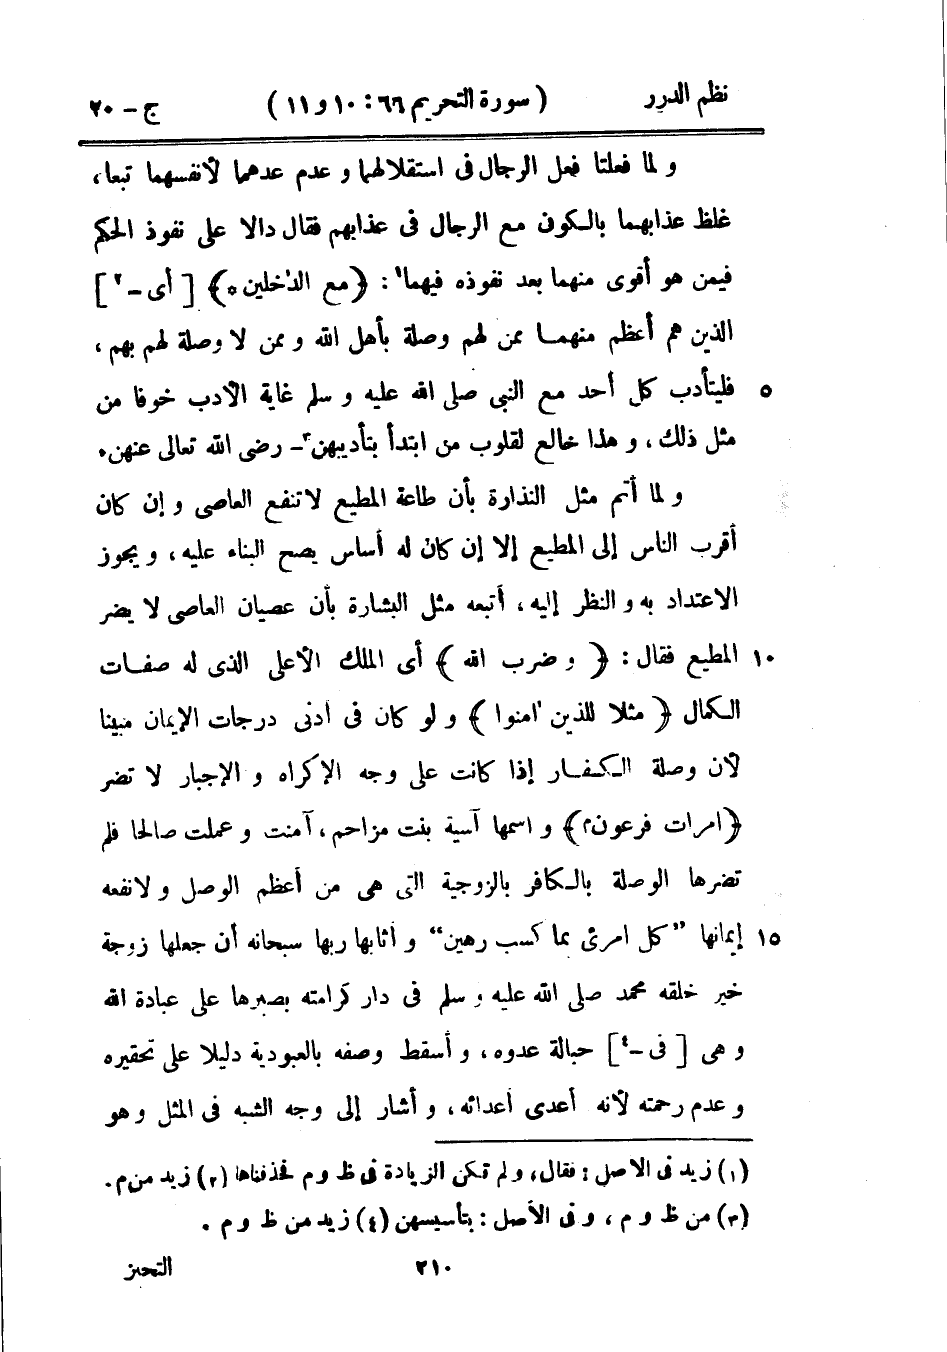 نظم الدرر ( سورة التحريم ٦٦ : ١٠ و ١١ ) ج - ٢٠
و لما فعلتا فعل الرجال فى استقلالهما و عدم عدهما لأنفسهما تبعا ،
غلظ عذابهما بالكون مع الرجال فى عذابهم فقال دالا على نفوذ الحكم
فيمن هو أقوى منهما بعد نفوذه فيهما١ : ﴿ مع الدٰخلين * ﴾ [ أى -٢ ]
الذين هم أعظم منهما ممن لهم وصلة بأهل الله و ممن لا وصلة لهم بهم ،
٥ فليتأدب كل أحد مع النبى صلى الله عليه و سلم غاية الأدب خوفا من
مثل ذلك ، و هذا خالع لقلوب من ابتدأ بتأديبهن٣ - رضى الله تعالى عنهن .
و لما أتم مثل النذارة بأن طاعة المطيع لا تنفع العاصى و إن كان
أقرب الناس إلى المطيع إلا إن كان له أساس يصح البناء عليه ، و يجوز
الاعتداد به و النظر إليه ، أتبعه مثل البشارة بأن عصيان العاصى لا يضر
١٠ المطيع فقال : ﴿ و ضرب الله ﴾ أى الملك الأعلى الذى له صفات
الكمال ﴿ مثلا للذين اٰمنوا ﴾ و لو كان فى أدنى درجات الإيمان مبينا
لأن وصلة الكفار إذا كانت على وجه الإكراه و الإجبار لا تضر
﴿ امرات فرعون م ﴾ و اسمها آسية بنت مزاحم ، آمنت و عملت صالحا فلم
تضرها الوصلة بالكافر بالزوجية التى هى من أعظم الوصل و لا نفعه
١٥ إيمانها "كل امرئ بما كسب رهين" و أثابها ربها سبحانه أن جعلها زوجة
خير خلقه محمد صلى الله عليه و سلم فى دار كرامته بصبرها على عبادة الله
و هى [ فى -٤ ] حبالة عدوه ، و أسقط وصفه بالعبودية دليلا على تحقيره
و عدم رحمته لأنه أعدى أعدائه ، و أشار إلى وجه الشبه فى المثل و هو
(١) زيد فى الأصل : فقال ، و لم تكن الزيادة فى ظ و م فحذفناها (٢) زيد من م .
(٣) من ظ و م ، و فى الأصل : بتأسيسهن (٤) زيد من ظ و م .
٢١٠ التحيز